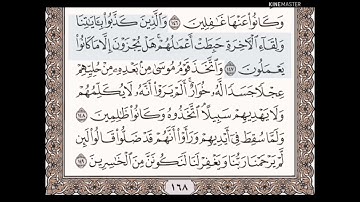 KINEMASTER
وَكَانُوا۟ عَنْهَا غَٰفِلِينَ ١٤٦ وَٱلَّذِينَ كَذَّبُوا۟ بِـَٔايَٰتِنَا
وَلِقَآءِ ٱلْـَٔاخِرَةِ حَبِطَتْ أَعْمَٰلُهُمْ هَلْ يُجْزَوْنَ إِلَّا مَا كَانُوا۟
يَعْمَلُونَ ١٤٧ وَٱتَّخَذَ قَوْمُ مُوسَىٰ مِنۢ بَعْدِهِۦ مِنْ حُلِيِّهِمْ
عِجْلًا جَسَدًا لَّهُۥ خُوَارٌ أَلَمْ يَرَوْا۟ أَنَّهُۥ لَا يُكَلِّمُهُمْ
وَلَا يَهْدِيهِمْ سَبِيلًا ٱتَّخَذُوهُ وَكَانُوا۟ ظَٰلِمِينَ ١٤٨
وَلَمَّا سُقِطَ فِىٓ أَيْدِيهِمْ وَرَأَوْا۟ أَنَّهُمْ قَدْ ضَلُّوا۟ قَالُوا۟ لَئِن
لَّمْ يَرْحَمْنَا رَبُّنَا وَيَغْفِرْ لَنَا لَنَكُونَنَّ مِنَ ٱلْخَٰسِرِينَ ١٤٩
١٦٨